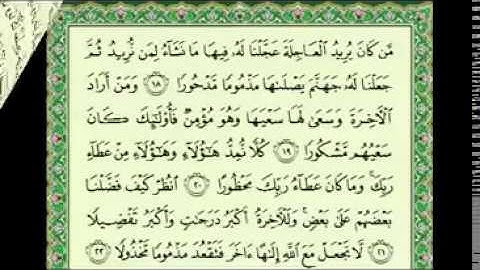 مَّن كَانَ يُرِيدُ الْعَاجِلَةَ عَجَّلْنَا لَهُۥ فِيهَا مَا نَشَآءُ لِمَن نُّرِيدُ ثُمَّ
جَعَلْنَا لَهُۥ جَهَنَّمَ يَصْلَىٰهَا مَذْمُومًا مَّدْحُورًا ١٨ وَمَنْ أَرَادَ
الْأَخِرَةَ وَسَعَىٰ لَهَا سَعْيَهَا وَهُوَ مُؤْمِنٌ فَأُو۟لَٰٓئِكَ كَانَ
سَعْيُهُم مَّشْكُورًا ١٩ كُلًّا نُّمِدُّ هَٰٓؤُلَآءِ وَهَٰٓؤُلَآءِ مِنْ عَطَآءِ
رَبِّكَ ۚ وَمَا كَانَ عَطَآءُ رَبِّكَ مَحْظُورًا ٢٠ انظُرْ كَيْفَ فَضَّلْنَا
بَعْضَهُمْ عَلَىٰ بَعْضٍ ۚ وَلَلْأَخِرَةُ أَكْبَرُ دَرَجَٰتٍ وَأَكْبَرُ تَفْضِيلًا
٢١ لَّا تَجْعَلْ مَعَ اللَّهِ إِلَٰهًا ءَاخَرَ فَتَقْعُدَ مَذْمُومًا مَّخْذُولًا ٢٢